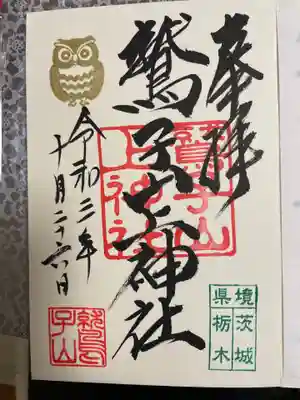 奉拝
鷲子山上神社
鷲子山
上神社
令和三年
十月二十六日
境茨城
県栃木